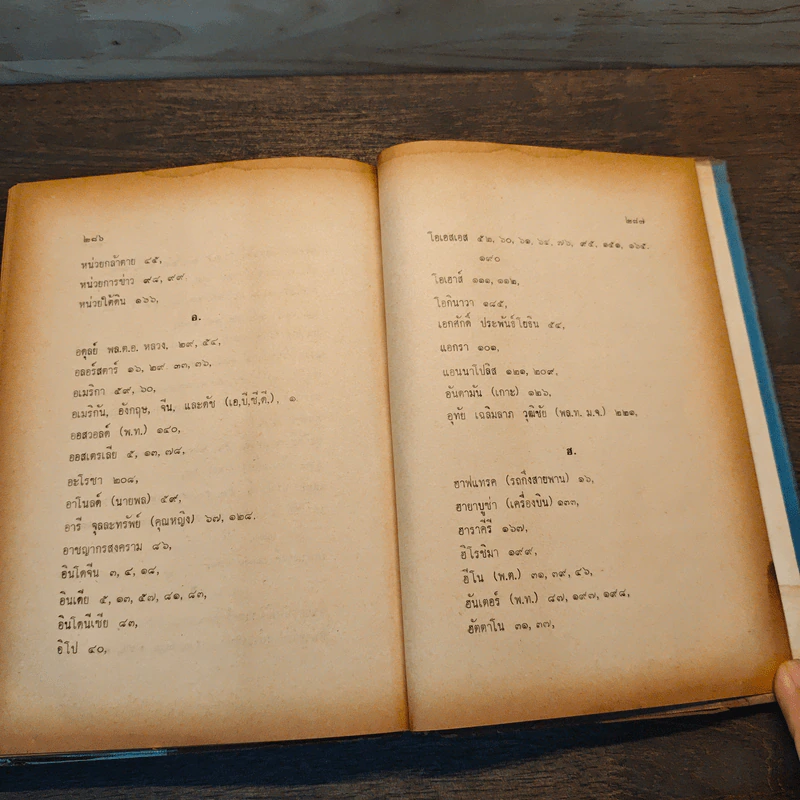 ๒๘๖
หน่วยกล้าตาย ๔๕,
หน่วยการข่าว ๙๘, ๙๙
หน่วยใต้ดิน ๑๖๖,
อ.
อดุลย์ พล.ต.อ. หลวง, ๒๙, ๕๔,
อลอร์สตาร์ ๑๖, ๒๙. ๓๓, ๓๖,
อเมริกา ๕๙, ๖๐,
อเมริกัน, อังกฤษ, จีน, และดัช (เอ,บี,ซี,ดี,), ๑
ออสวอลด์ (พ.ท.) ๑๔๐,
ออสเตรเลีย ๕, ๑๓, ๗๘,
อะโรชา ๒๐๘,
อาโนลด์ (นายพล) ๕๙,
อารี จุลละทรัพย์ (คุณหญิง) ๖๗, ๑๒๘.
อาชญากรสงคราม ๘๖,
อินโดจีน ๓, ๔, ๑๘,
อินเดีย ๕, ๑๓, ๕๗, ๘๑, ๘๓,
อินโดนีเซีย ๘๓,
อิโป ๔๐,
๒๘๗
โอเอสเอส ๕๒, ๖๐, ๖๑, ๖๔, ๗๖, ๙๕, ๑๕๑, ๑๖๕.
๑๙๐
โอเฮาส์ ๑๑๑, ๑๑๒,
โอกินาวา ๑๘๕,
เอกศักดิ์ ประพันธ์โยธิน ๕๔,
แอกรา ๑๐๑,
แอนนาโปลิส ๑๒๑, ๒๐๙,
อันดามัน (เกาะ) ๑๒๖,
อุทัย เฉลิมลาภ วุฒิชัย (พล.ท. ม.จ.) ๒๒๑,
ฮ.
ฮาฟแทรค (รถกึ่งสายพาน) ๑๖,
ฮายาบูซ่า (เครื่องบิน) ๑๓๓,
ฮาราคีรี ๑๖๗,
ฮิโรชิมา ๑๙๙,
ฮีโน (พ.ต.) ๓๑, ๓๙, ๔๖,
ฮันเตอร์ (พ.ท.) ๘๗, ๑๙๗, ๑๙๘,
ฮัตตาโน ๓๑, ๓๗,